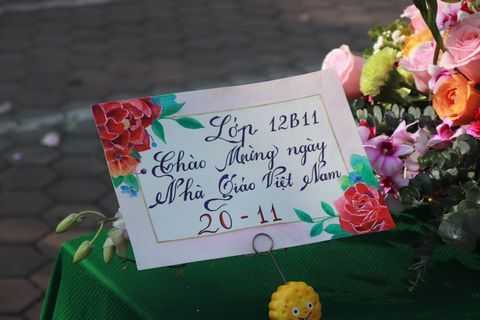 Lớp 12B11
Chào Mừng ngày
Nhà Giáo Việt Nam
20-11